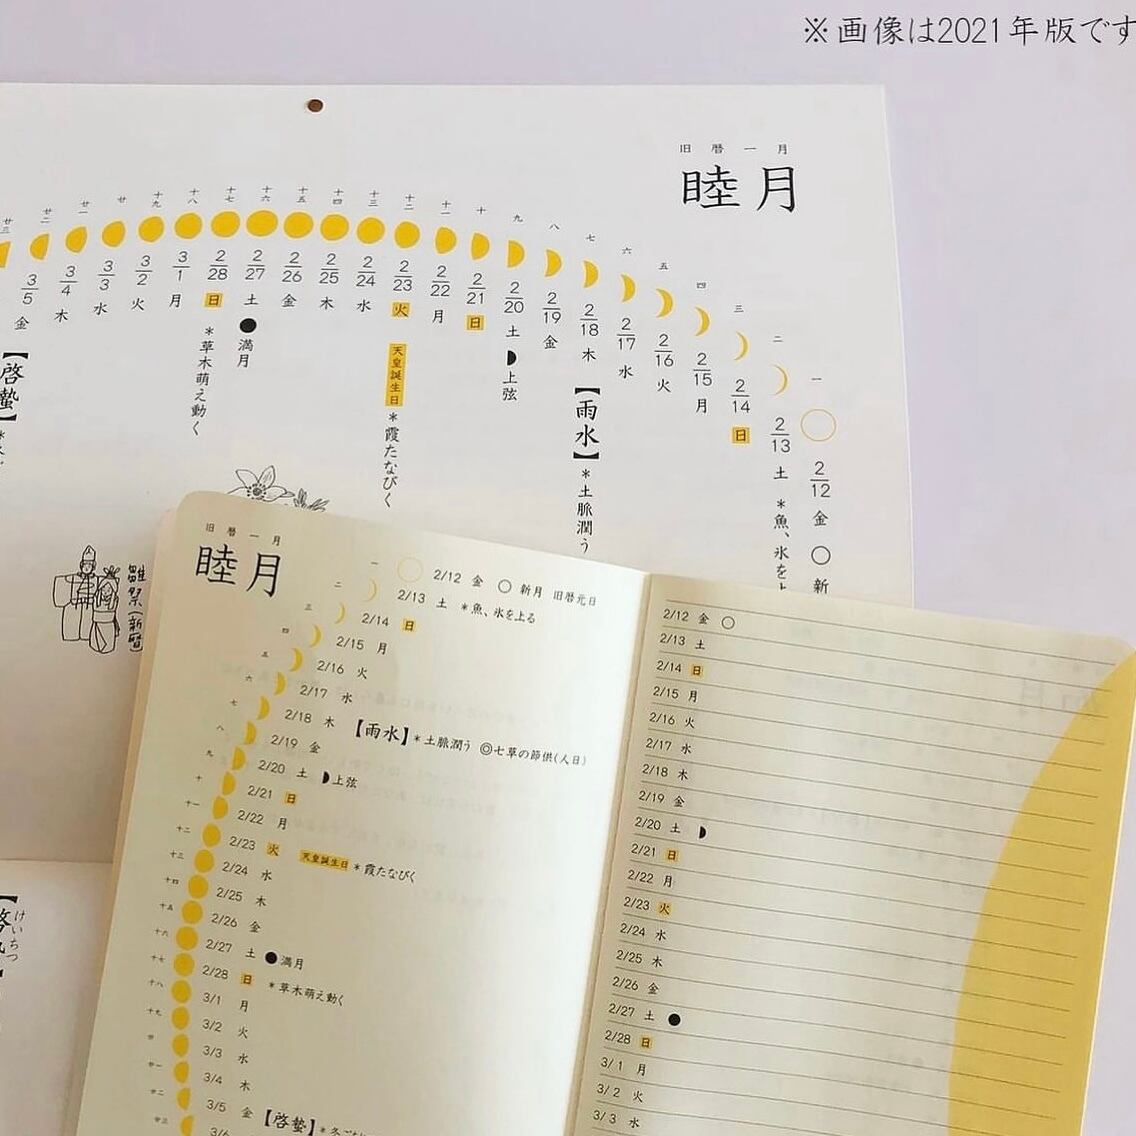 ※画像は2021年版です
旧暦一月
睦月
一 2/12 金 ○新
二 2/13 土 *魚、氷を上
三 2/14 日
四 2/15 月
五 2/16 火
六 2/17 水
七 2/18 木 【雨水】*土脈潤う
八 2/19 金
九 2/20 土 上弦
十 2/21 日
十一 2/22 月
十二 2/23 火 天皇誕生日 *霞たなびく
十三 2/24 水
十四 2/25 木
十五 2/26 金
十六 2/27 土 ●満月
十七 2/28 日 *草木萌え動く
十八 3/1 月
十九 3/2 火
廿 3/3 水
廿一 3/4 木
廿二 3/5 金
廿三 【啓蟄】*
雛祭(新暦)
けいちつ
旧暦一月
睦月
一 2/12 金 ○新月 旧暦元日
二 2/13 土 *魚、氷を上る
三 2/14 日
四 2/15 月
五 2/16 火
六 2/17 水
七 2/18 木 【雨水】*土脈潤う ◎七草の節供(人日)
八 2/19 金
九 2/20 土 上弦
十 2/21 日
十一 2/22 月
十二 2/23 火 天皇誕生日 *霞たなびく
十三 2/24 水
十四 2/25 木
十五 2/26 金
十六 2/27 土 ●満月
十七 2/28 日 *草木萌え動く
十八 3/1 月
十九 3/2 火
廿 3/3 水
廿一 3/4 木
廿二 3/5 金 【啓蟄】*冬ご
廿三 3/6
2/12 金 ○
2/13 土
2/14 日
2/15 月
2/16 火
2/17 水
2/18 木
2/19 金
2/20 土
2/21 日
2/22 月
2/23 火
2/24 水
2/25 木
2/26 金
2/27 土 ●
2/28 日
3/1 月
3/2 火
3/3 水